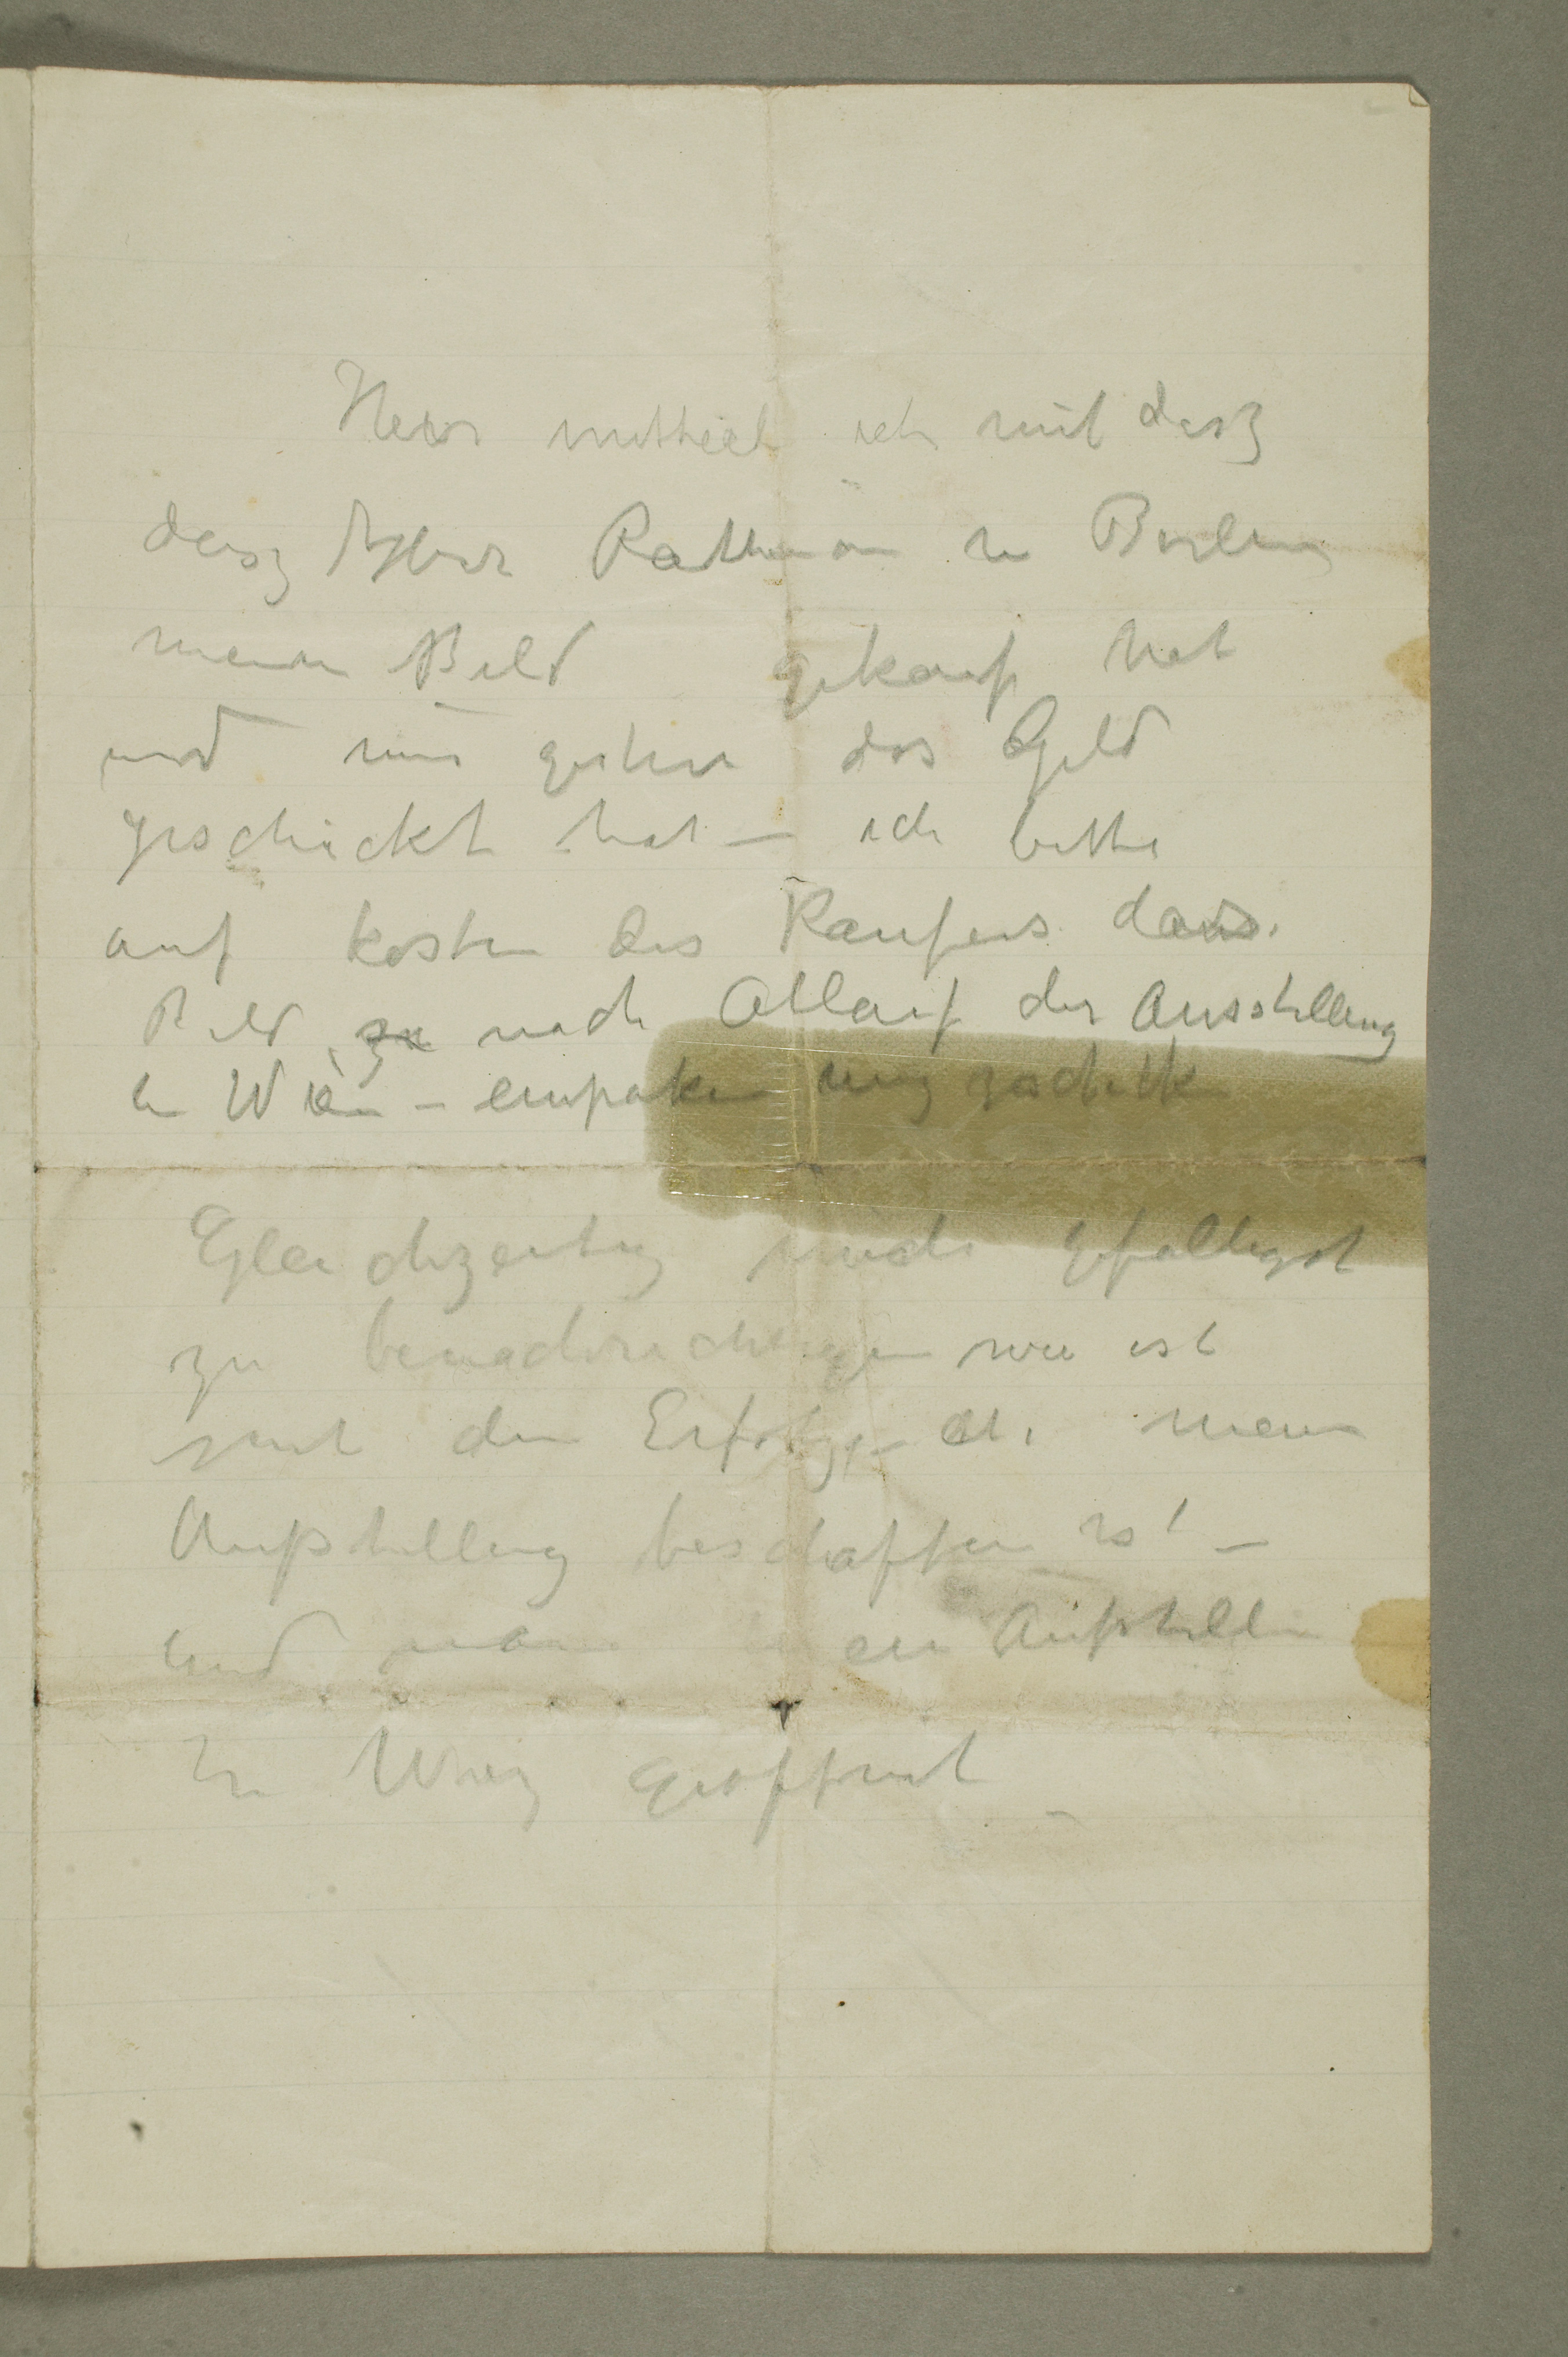 Herr mittheil ich mit dasz
dasz Herr Rathenau in Berlin
mein Bild gekauf hat
und mir gestern das Geld
geschickt hat – ich bitte
auf kosten des Kaufers das
Bild zu nach Ablauf der Ausstellung
in Wien – einpaken
Gleichzeitig mich gefalligst
zu benachrichtigen wie ist
mit den Erfolg, – mein
Austellung beschaffen ist –
und wan Austell
in Wien eröffnet –